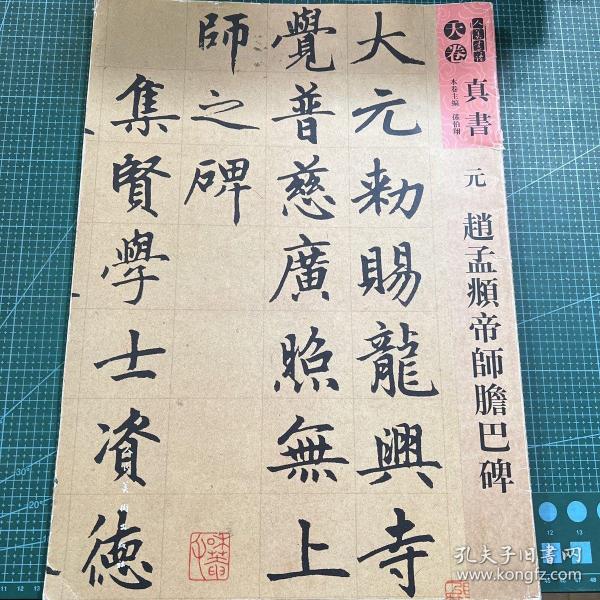 天卷
真書
本卷主編 孫伯翔
元 趙孟頫帝師膽巴碑
大元勅賜龍興寺
覺普慈廣照無上
師之碑
集賢學士資德
孔夫子旧书网
www.kongfz.com